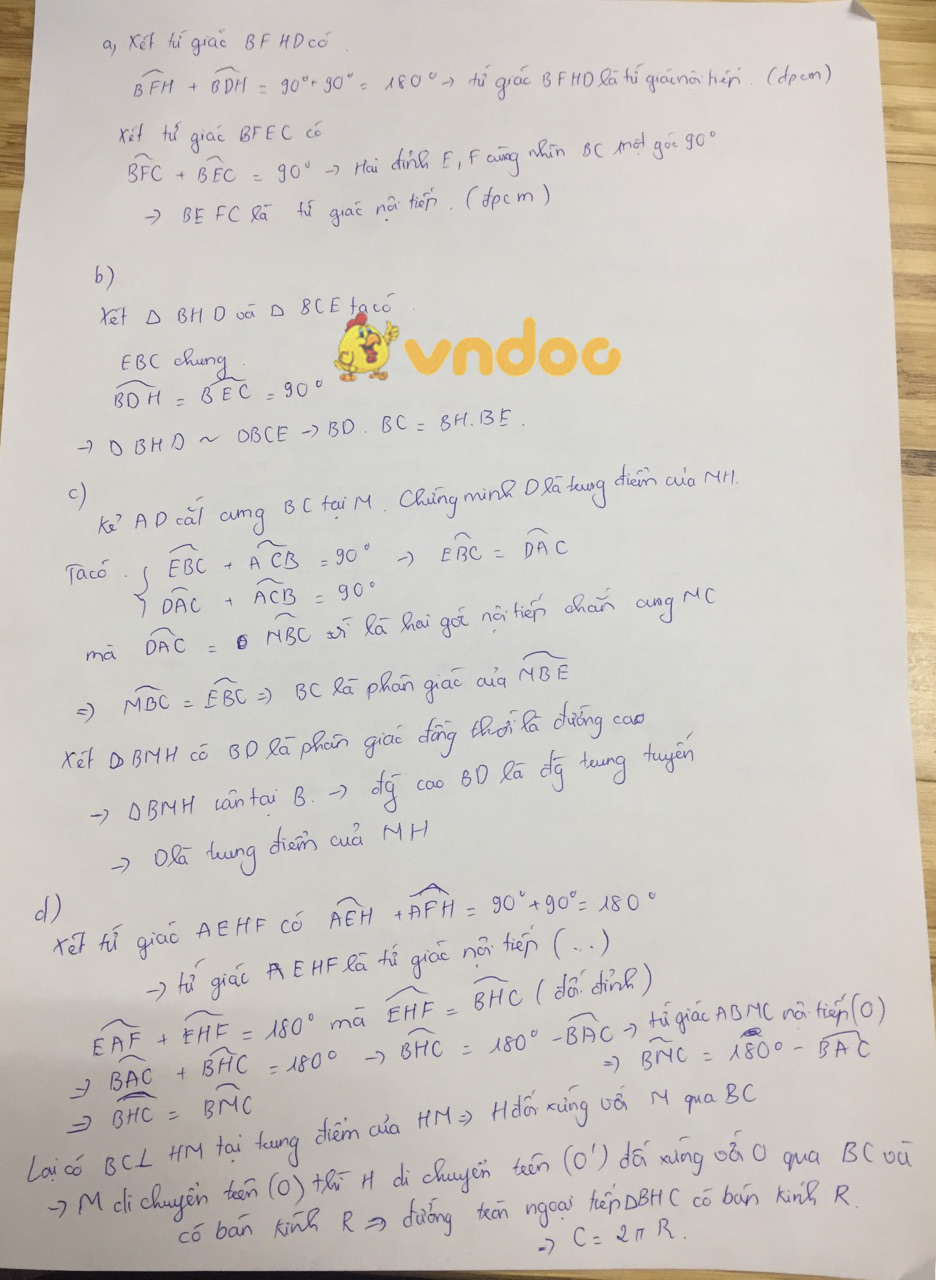 a, Xét tứ giác BFHD có
BFH + BDH = 90° + 90° = 180° → tứ giác BFHD là tứ giác nội tiếp. (đpcm)
Xét tứ giác BFEC có
BFC + BEC = 90° → Hai đỉnh E, F cùng nhìn BC một góc 90°
→ BEFC là tứ giác nội tiếp. (đpcm)
b)
Xét Δ BHD và Δ BCE ta có
vndoc
EBC chung
BDH = BEC = 90°
→ Δ BHD ~ ΔBCE → BD . BC = BH.BE.
c)
Kẻ AD cắt cung BC tại M. Chứng minh D là trung điểm của MH.
Ta có { EBC + ACB = 90° → EBC = DAC
DAC + ACB = 90°
mà DAC = MBC vì là hai góc nội tiếp chắn cung MC
=> MBC = EBC => BC là phân giác của MBE
Xét ΔBMH có BD là phân giác đồng thời là đường cao
→ ΔBMH cân tại B. → đg cao BD là đg trung tuyến
→ D là trung điểm của MH
d)
Xét tứ giác AEHF có AEH + AFH = 90° + 90° = 180°
→ tứ giác AEHF là tứ giác nội tiếp (...)
EAF + EHF = 180° mà EHF = BHC (đối đỉnh)
=> BAC + BHC = 180° → BHC = 180° - BAC → tứ giác ABMC nội tiếp (O)
=> BMC = 180° - BAC
=> BHC = BMC
Lại có BC⊥ HM tại trung điểm của HM => H đối xứng với M qua BC
→ M di chuyển trên (O) thì H di chuyển trên (O') đối xứng với O qua BC và
có bán kính R => đường tròn ngoại tiếp ΔBHC có bán kính R.
=> C = 2πR.